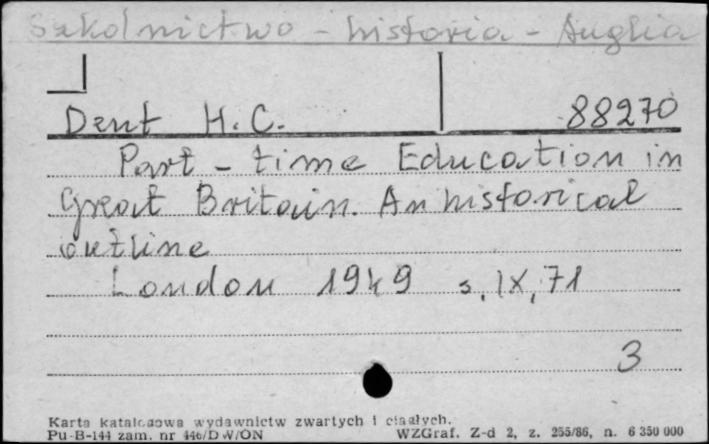 Szkolnictwo - historia - Anglia
Dent H.C. 88270
Part - time Education in
Great Britain. An historical
outline
London 1949 s, IX, 71
3
Karta katalogowa wydawnictw zwartych i ciągłych.
Pu-B-144 zam. nr 446/DW/ON WZGraf. Z-d 2, z. 255/86, n. 6 350 000